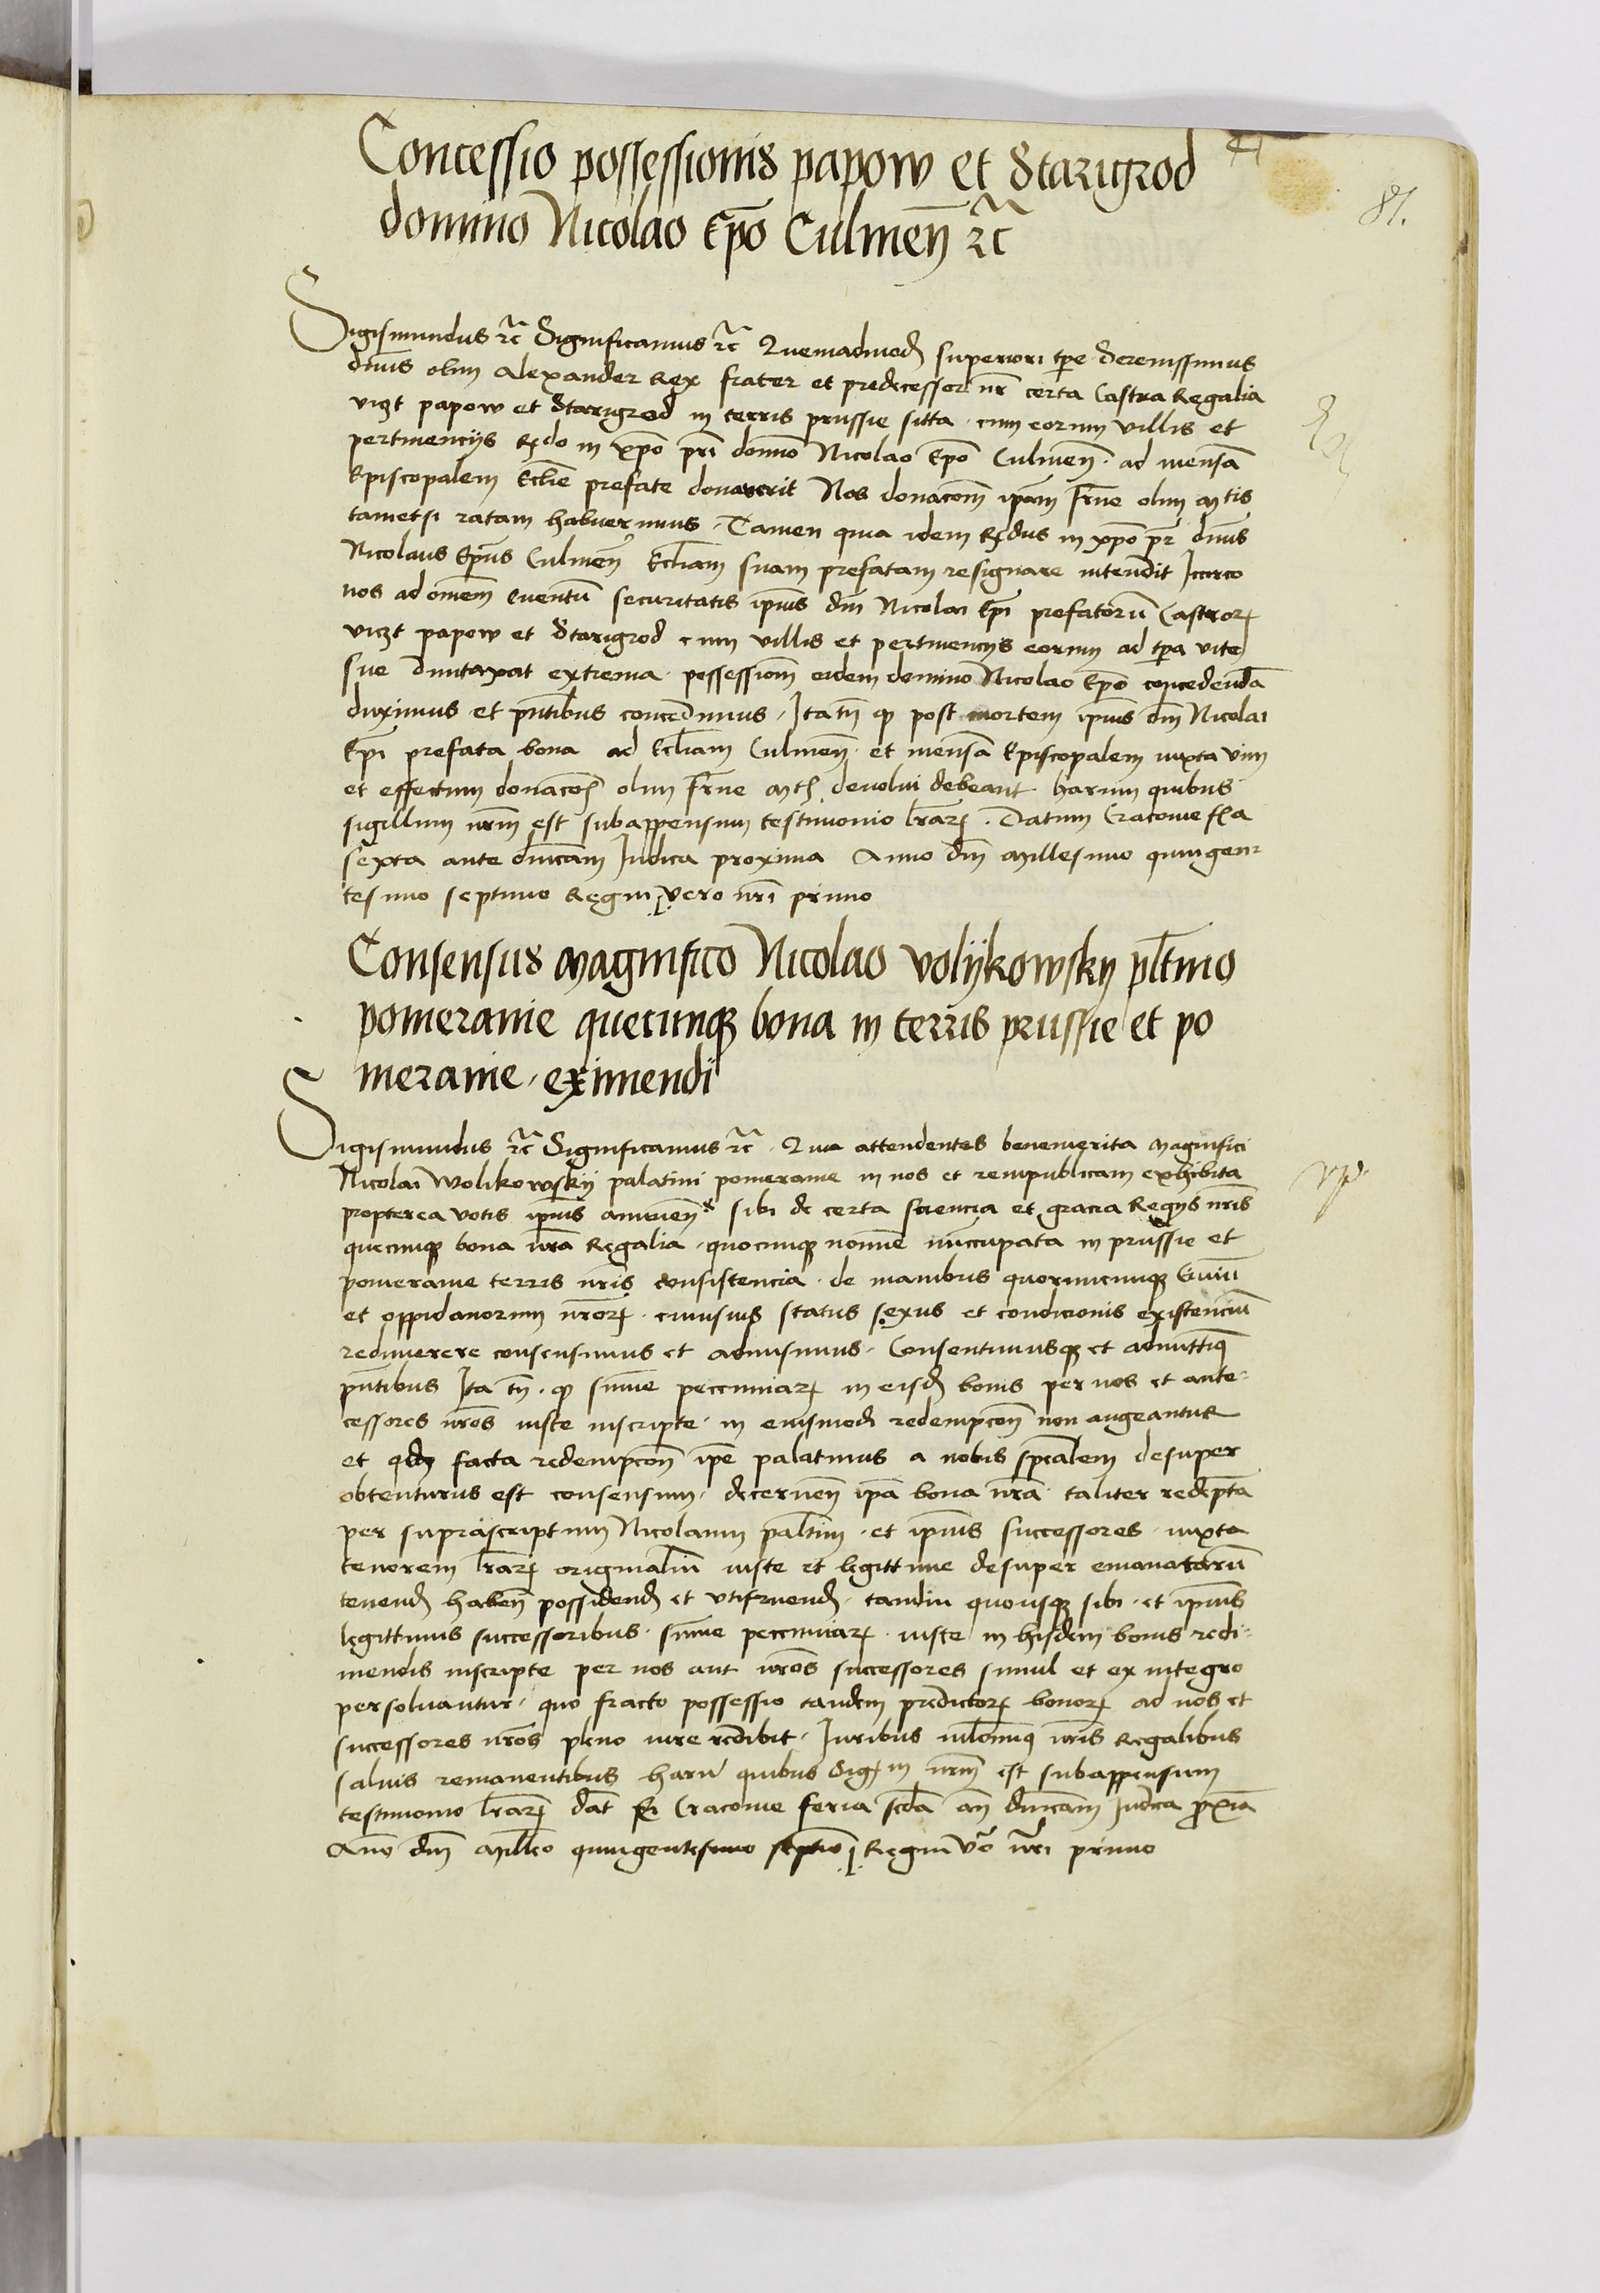 Concessio possessionis papow et Starigrod
81.
domino Nicolao Ep̃o Culmen̄ ⁊c̃
Sigismundus ⁊c̃ Significamus ⁊c̃ Quemadmod̨ superiori tp̃e Serenissimus
dn̄us olim Alexander Rex frater et predecessor nr̄ certa Castra Regalia
vicꝫt papow et Starigrod in terris prussie sitta · cum eorum villis et
pertinencijs R̨do in xp̄o pr̄i domino Nicolao Ep̄o Culmen̄ · ad mensā
Episcopalem Ecl̄ie prefate donaverit Nos donacōm ip̄am fr̄ne olim M̃tis
tametsi ratam habuerimus · Tamen quia idem R̨dus in xp̄o pr̄ dn̄us
Nicolaus Ep̄us Culmen̄ Eccl̄iam suam prefatam resignare intendit Iccirco
nos ad omēm eventū securitatis ip̄ius dn̄i Nicolai Ep̄i prefatorū Castroꝝ
vicꝫt papow et Starigrod cum villis et pertinencijs eorum ad tp̄a vite
sue duntaxat extrema · possessionē eidem domino Nicolao Ep̄o concedendā
duximus et pn̄tibus concedimus · Ita tn̄ ꝙ post mortem ip̄ius dn̄i Nicolai
Ep̄i prefata bona ad Eccl̄iam Culmen̄ · et mensā Episcopalem iuxta vim
et effectum donacōis olim fr̄ne M̃tis devolui debeant · harum quibus
sigillum nr̄m est subappensum testimonio l̄raꝝ · Datum Cracovie f̄ia
sexta ante dn̄icam Iudica proxima Anno dn̄i Millesimo quingen⸗
tesimo septimo Regni vero nr̄i primo
Consensus Magnifico Nicolao Volijkowsky pl̄tino
pomeranie quecunqꝫ bona in terris prussie et po
meranie · eximendi
Sigismundus ⁊c̃ Significamus ⁊c̃ · Quia attendentes benemerita Magnifici
Nicolai Wolikowskij palatini pomeranie in nos et rempublicam exhibita
propterea votis ip̄ius annuen̄ sibi de certa sciencia et gracia Regijs nr̄is
quecunqꝫ bona nr̄a Regalia · quocunqꝫ nomine nuncupata in prussie et
pomeranie terris nr̄is consistencia · de manibus quorumcunqꝫ Civiū
et oppidanorum nr̄oꝝ · cuiusuis status sexus et condicionis existenciū
redimerere consensimus et admisimus · Consentimusqꝫ et admittimꝰ
pn̄tibus Ita tn̄ · ꝙ sum̄e pecuniaꝝ in eisd̨ bonis per nos et ante⸗
cessores nr̄os iuste inscripte · in eiusmodi redempcōn̄ non augeantur
et facta redempcōn̄ ip̄e palatinus a nobis sp̄cialem desuper
obtenturus est consensum · decernen̄ ip̄a bona nr̄a taliter redēpta
per suprascriptum Nicolaum pal̄tinū · et ip̄ius successores · iuxta
tenorem l̄raꝝ originaliū iuste et legittime desuper emanatarū
tenend̨ haben̄ possidend̨ et vtifruend̨ · tamdiu quousqꝫ sibi · et ip̄ius
legittimis successoribus · sum̄e pecuniaꝝ · iuste in hisdem bonis redi⸗
mendis inscripte per nos aut nr̄os successores simul et ex integro
persoluantur · quo fracto possessio tandem predictoꝝ bonoꝝ ad nos et
successores nr̄os pleno iure redibit · Iuribus nr̄is Regalibus
saluis remanentibus harū quibus Sigꝫm nr̄m est subappensum
testimonio l̄raꝝ Dāt Cracovie feria scd̄a an̄ dn̄icam Iudica p̄xīa
Anō dn̄i Mill̄eo quingentesimo septīo Regni v̄o nr̄i primo